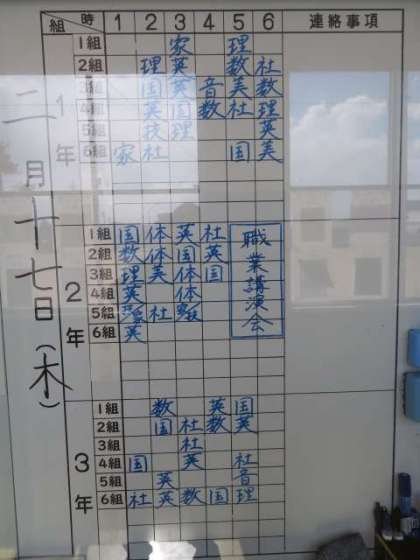 組 時 1 2 3 4 5 6 連絡事項
二月十七日(木)
1年
1組 家 理
2組 理 英 数 社
3組 国 英 音 美 数
4組 英 国 数 社 理
5組 技 理 英
6組 家 社 国 美
2年
1組 国 体 英 社
2組 数 体 国 英
3組 理 美 体 国
4組 英 体
5組 社
6組 英
職業講演会
3年
1組 数 英 国
2組 国 社 数 英
3組 社
4組 国 英 社
5組 英 音
6組 社 英 数 国 理